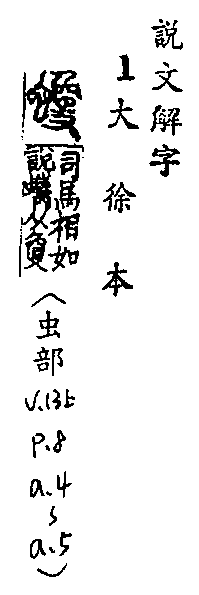 説文解字
1 大徐本
司馬相如
說蠵从敻
(虫部
V.13上
P.8
a.4
~
a.5)